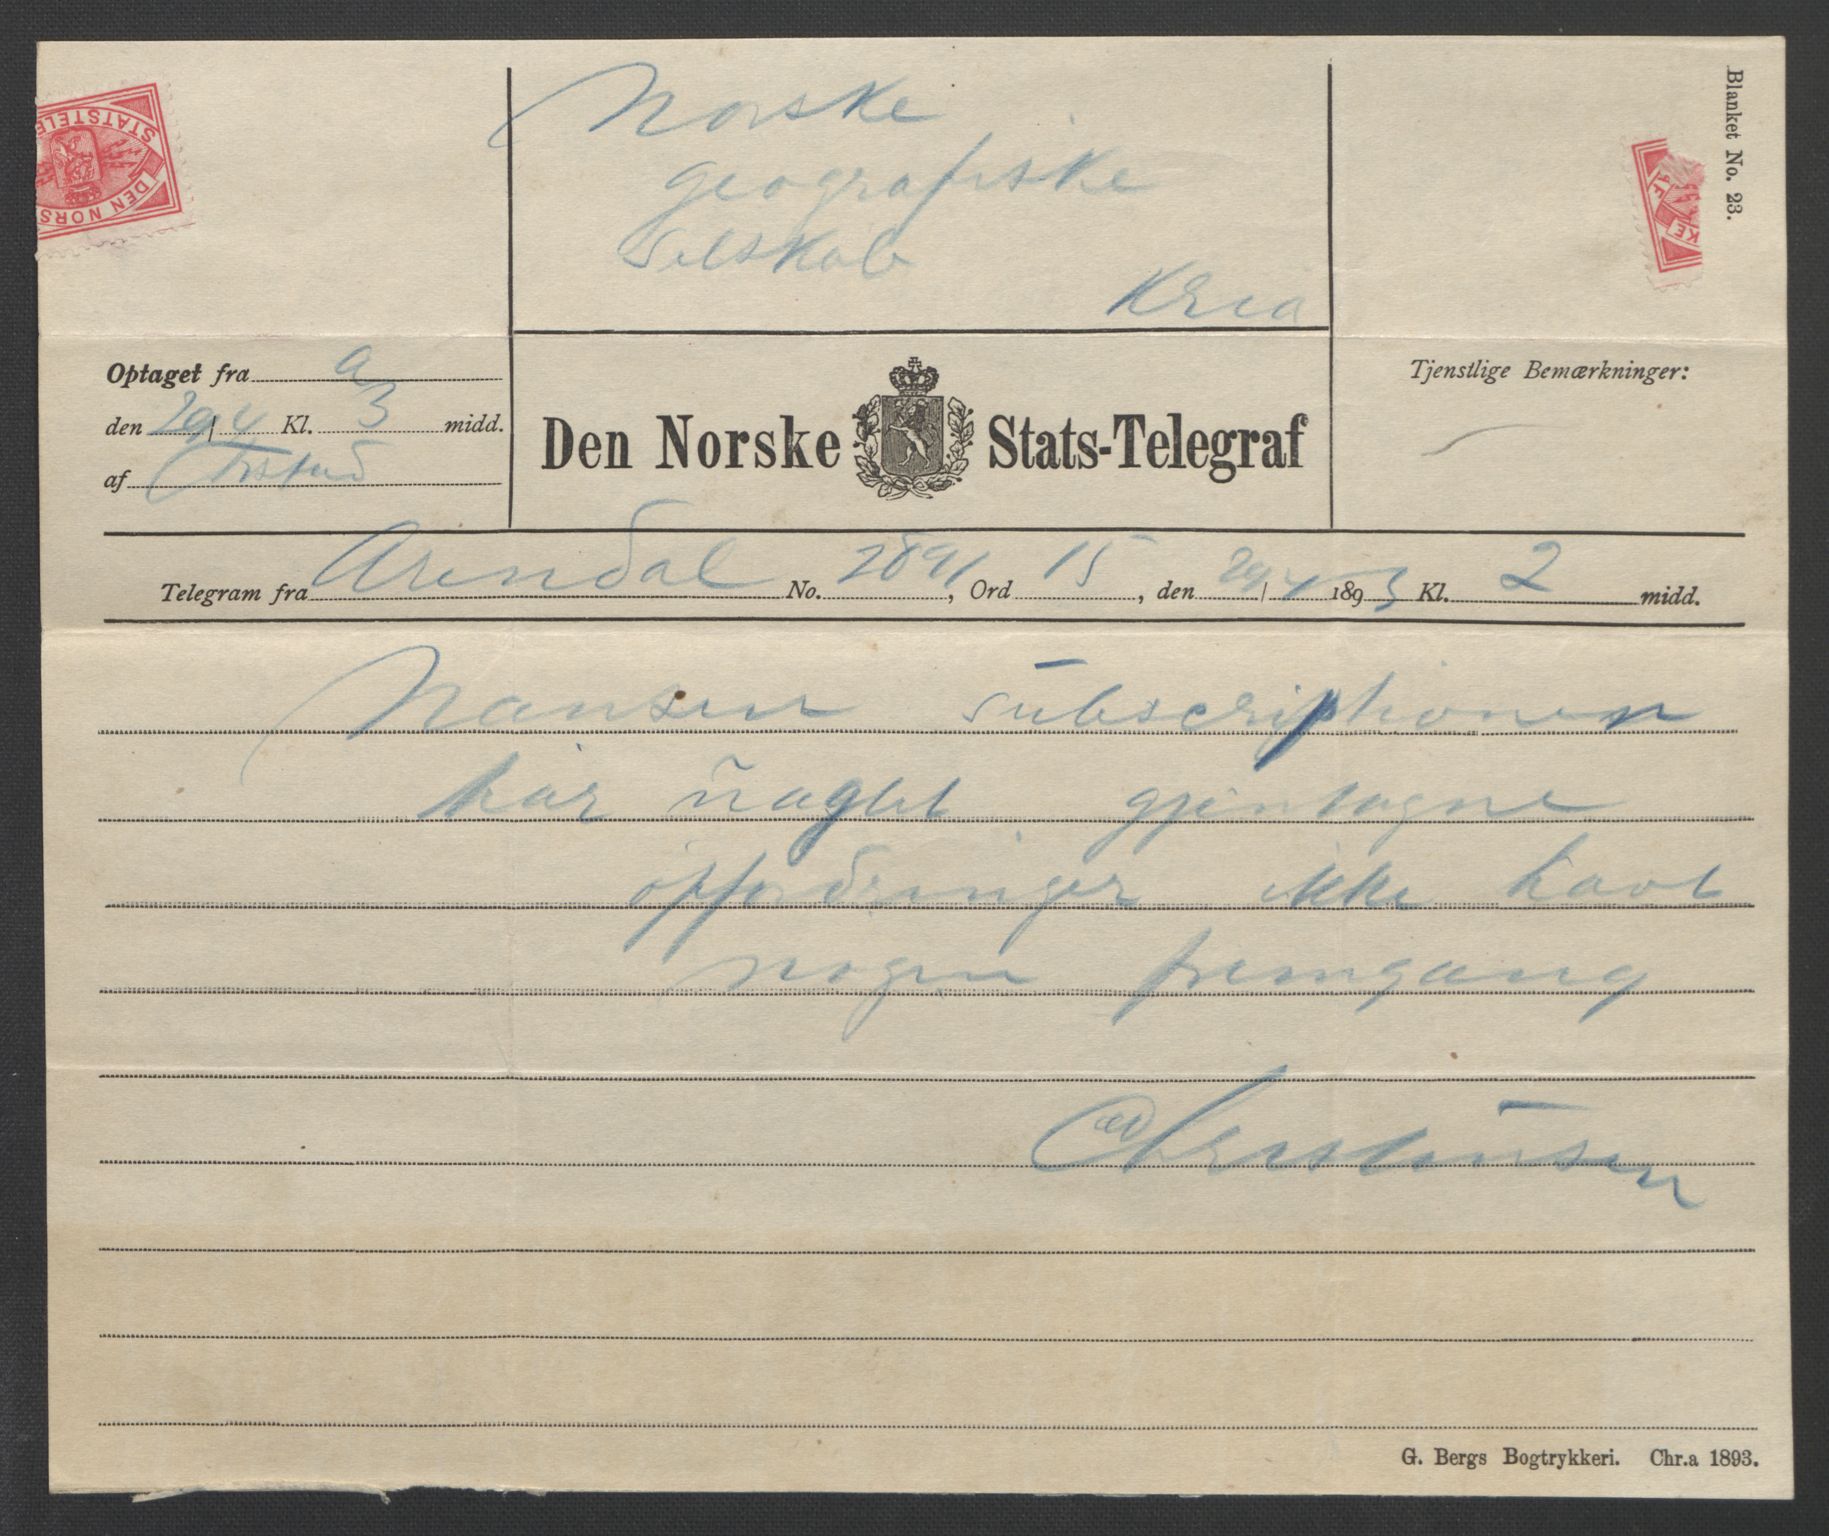 Norske
geografiske
Selskab
Kria
Blanket No. 23.
STATSTELE
DEN NORS
AF
KE
Optaget fra a
den 29/4 Kl. 3 midd.
af
Den Norske Stats-Telegraf
Tjenstlige Bemærkninger:
Telegram fra Arendal No. 2891, Ord 15, den 29/4 1893 Kl. 2 midd.
Nansen subscriptionen
har uagtet gjentagne
opfordringer ikke havt
nogen fremgang
Christensen
G. Bergs Bogtrykkeri. Chr.a 1893.